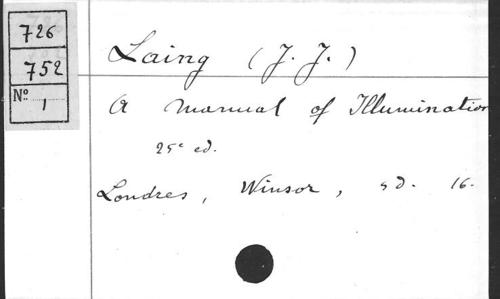 726
752
Nº 1
Laing (J. J.)
A manual of Illumination
25e ed.
Londres, Winsor, sd. 16.